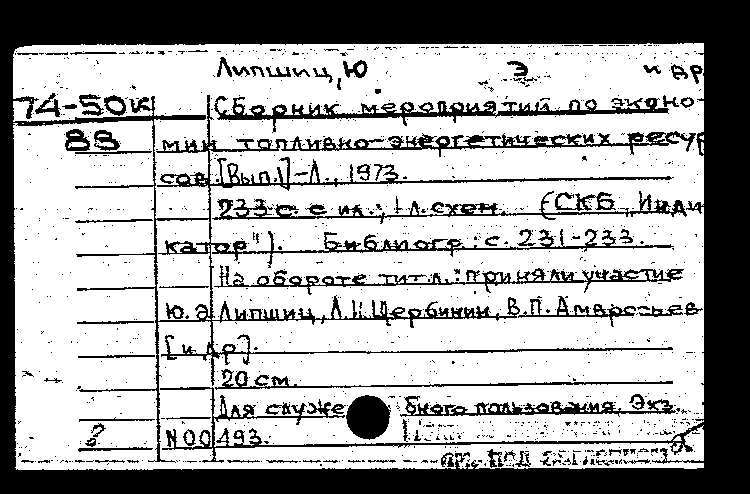 Липшиц, Ю Э и др
74-50к Сборник мероприятий по эконо-
88 мии топливно-энергетических ресур
сов [Вып.1] - Л., 1973.
233 с. с ил.; 1 л. схем. (СКБ „Инди
катор"). Библиогр.: с. 231-233.
На обороте тит. л.: приняли участие
Ю.Э Липшиц, Л.И. Щербинин, В.П. Амвросьев
[и др].
20 см.
Для служебного пользования. Экз.
? N 00493.